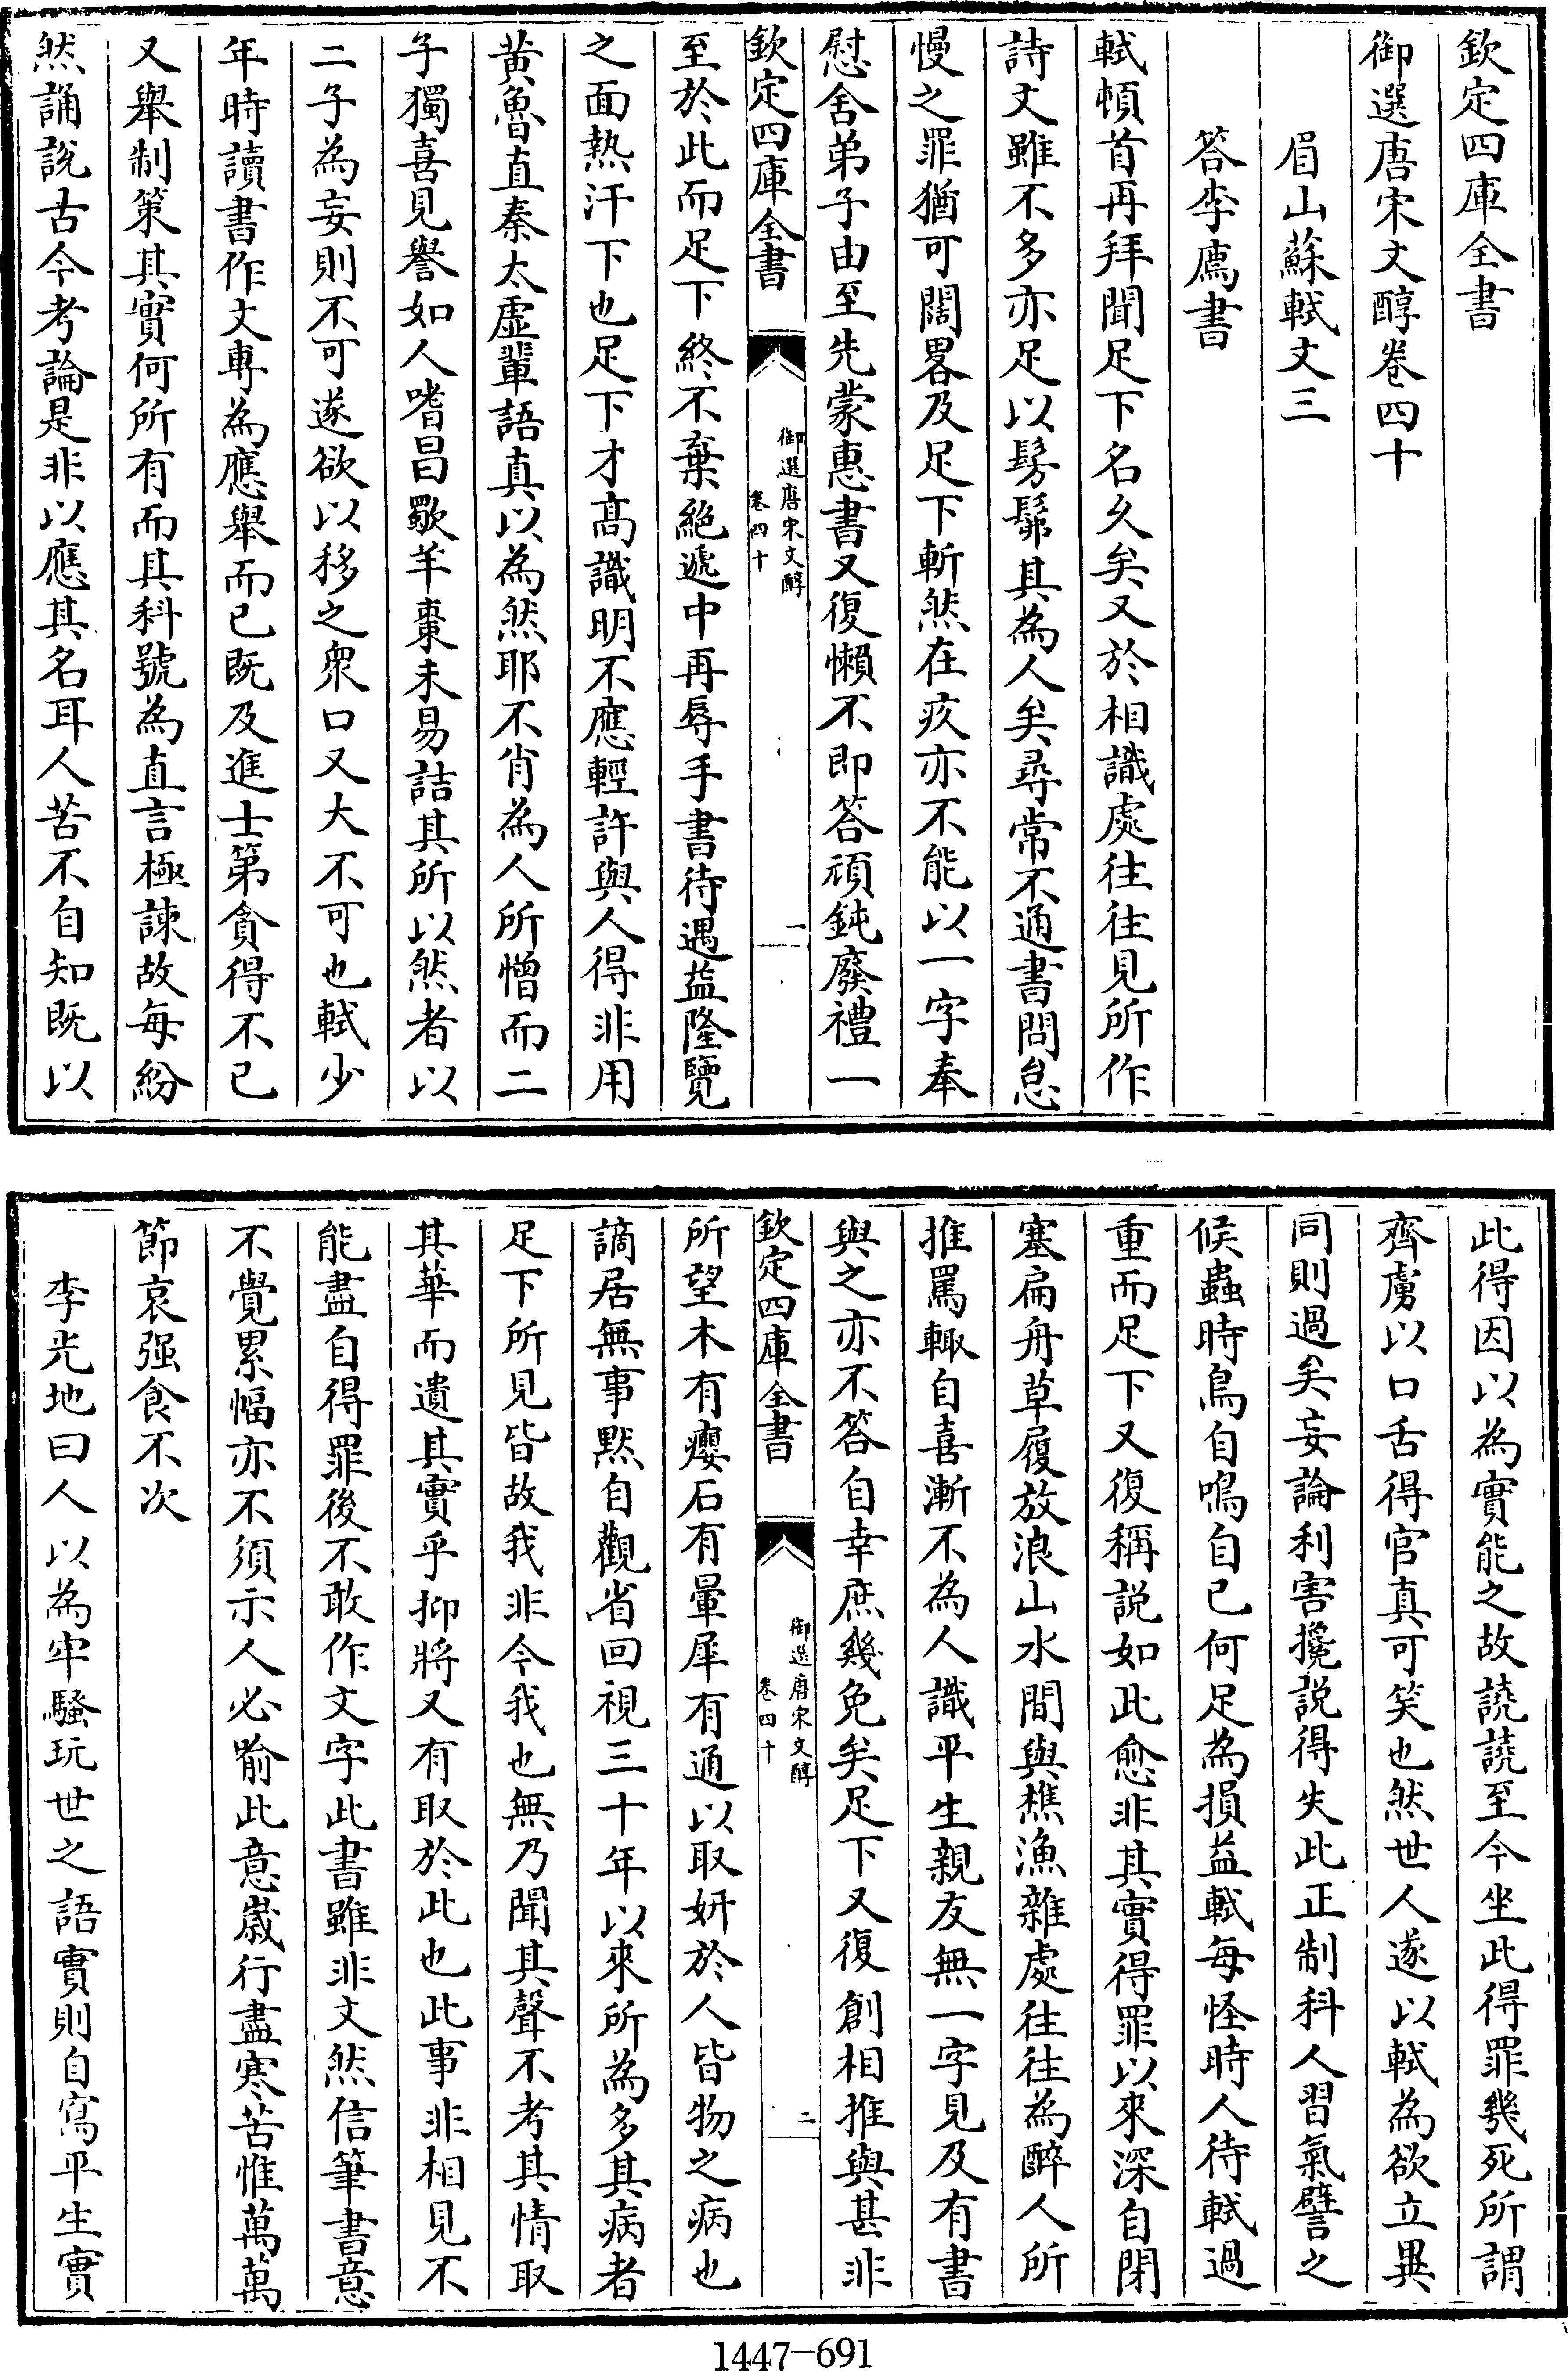 欽定四庫全書
御選唐宋文醇卷四十
眉山蘇軾文三
答李廌書
軾頓首再拜聞足下名久矣又於相識處往往見所作
詩文雖不多亦足以髣髴其為人矣尋常不通書問怠
慢之罪猶可闊畧及足下斬然在疚亦不能以一字奉
慰舍弟子由至先蒙惠書又復懶不即答頑鈍廢禮一
欽定四庫全書
御選唐宋文醇
卷四十
一
至於此而足下終不棄絕遞中再辱手書待遇益隆覽
之面熱汗下也足下才高識明不應輕許與人得非用
黃魯直秦太虛輩語真以為然耶不肖為人所憎而二
子獨喜見譽如人嗜昌歜羊棗未易詰其所以然者以
二子為妄則不可遂欲以移之衆口又大不可也軾少
年時讀書作文專為應舉而已既及進士第貪得不已
又舉制策其實何所有而其科號為直言極諫故每紛
然誦說古今考論是非以應其名耳人苦不自知既以
此得因以為實能之故譊譊至今坐此得罪幾死所謂
齊虜以口舌得官真可笑也然世人遂以軾為欲立異
同則過矣妄論利害攙説得失此正制科人習氣譬之
候蟲時鳥自鳴自已何足為損益軾每怪時人待軾過
重而足下又復稱説如此愈非其實得罪以來深自閉
塞扁舟草履放浪山水間與樵漁雜處往往為醉人所
推罵輒自喜漸不為人識平生親友無一字見及有書
與之亦不答自幸庶幾免矣足下又復創相推與甚非
欽定四庫全書
御選唐宋文醇
卷四十
二
所望木有癭石有暈犀有通以取妍於人皆物之病也
謫居無事默自觀省回視三十年以來所為多其病者
足下所見皆故我非今我也無乃聞其聲不考其情取
其華而遺其實乎抑將又有取於此也此事非相見不
能盡自得罪後不敢作文字此書雖非文然信筆書意
不覺累幅亦不須示人必喻此意歲行盡寒苦惟萬萬
節哀强食不次
李光地曰人以為牢騷玩世之語實則自寫平生實
1447-691